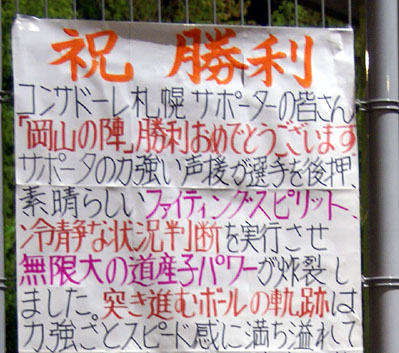 祝 勝利
コンサドーレ札幌サポーターの皆さん
「岡山の陣」勝利おめでとうございます
サポータの力強い声援が選手を後押、
素晴らしいファイティング・スピリット、
冷静な状況判断を実行させ
無限大の道産子パワーが炸裂し
ました。突き進むボールの軌跡は
力強さとスピード感に満ち溢れて